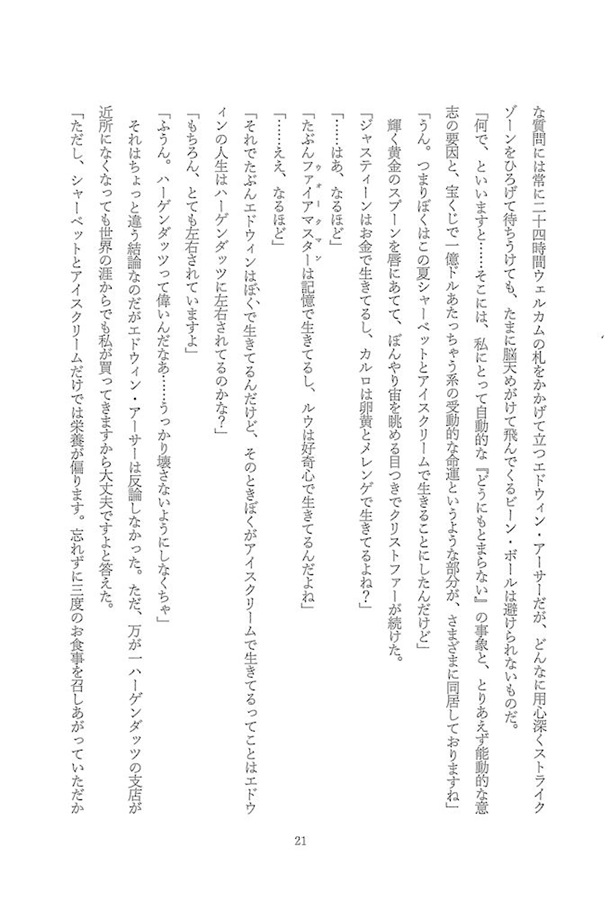 な質問には常に二十四時間ウェルカムの札をかかげて立つエドウィン・アーサーだが、どんなに用心深くストライク
ゾーンをひろげて待ちうけても、たまに脳天めがけて飛んでくるビーン・ボールは避けられないものだ。
「何で、といいますと……そこには、私にとって自動的な『どうにもとまらない』の事象と、とりあえず能動的な意
志の要因と、宝くじで一億ドルあたっちゃう系の受動的な命運というような部分が、さまざまに同居しておりますね」
「うん。つまりぼくはこの夏シャーベットとアイスクリームで生きることにしたんだけど」
輝く黄金のスプーンを唇にあてて、ぼんやり宙を眺める目つきでクリストファーが続けた。
「ジャスティーンはお金で生きてるし、カルロは卵黄とメレンゲで生きてるよね？」
「……はあ、なるほど」
「たぶんファイアマスターは記憶で生きてるし、ルウは好奇心で生きてるんだよね」
ウォークマン
「……ええ、なるほど」
「それでたぶんエドウィンはぼくで生きてるんだけど、そのときぼくがアイスクリームで生きてるってことはエドウ
ィンの人生はハーゲンダッツに左右されてるのかな？」
「もちろん、とても左右されていますよ」
「ふうん。ハーゲンダッツって偉いんだなあ……うっかり壊さないようにしなくちゃ」
それはちょっと違う結論なのだがエドウィン・アーサーは反論しなかった。ただ、万が一ハーゲンダッツの支店が
近所になくなっても世界の涯からでも私が買ってきますから大丈夫ですよと答えた。
「ただし、シャーベットとアイスクリームだけでは栄養が偏ります。忘れずに三度のお食事を召しあがっていただか
21